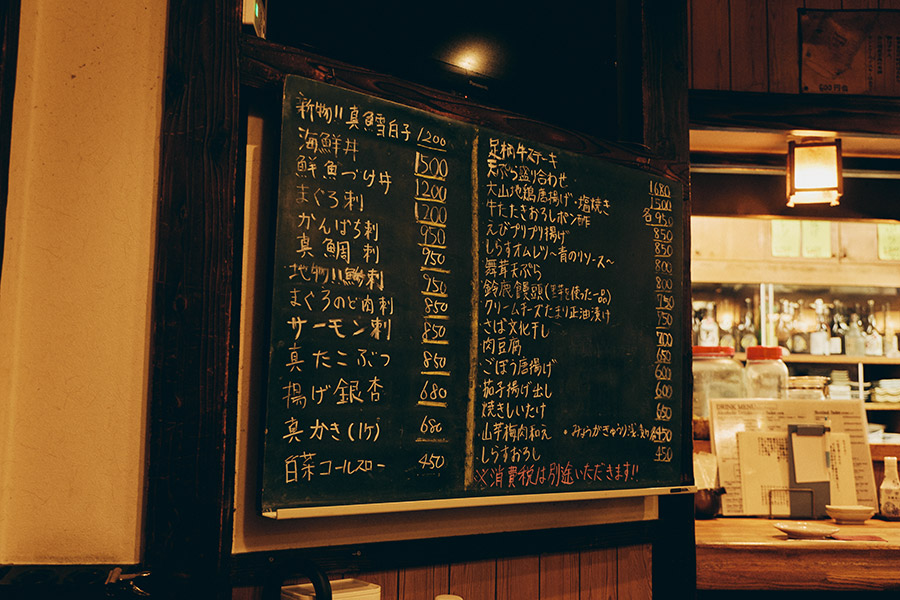 新物!! 真鱈白子 1200
海鮮丼 1500
鮮魚づけ丼 1200
まぐろ刺 1200
かんぱち刺 950
真鯛刺 950
地物!!鯵刺 950
まぐろのど肉刺 850
サーモン刺 850
真たこぶつ 850
揚げ銀杏 680
真かき(1ケ) 680
白菜コールスロー 450
足柄牛ステーキ 1680
天ぷら盛り合わせ 1500
大山地鶏唐揚げ・塩焼き 各950
牛たたきおろしポン酢 850
えびプリプリ揚げ 850
しらすオムレツ〜青のりソース〜 800
舞茸天ぷら 800
饅頭 750
クリームチーズたまり正油漬け 750
さば文化干し 700
肉豆腐 650
ごぼう唐揚げ 600
茄子揚げ出し 600
焼きしいたけ 650
山芋梅肉和え ・みょうがきゅうり 450
しらすおろし 450
※消費税は別途いただきます!!
Panasonic
DRINK MENU